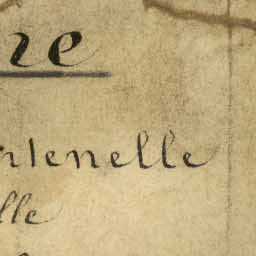 re
ntenelle
lle